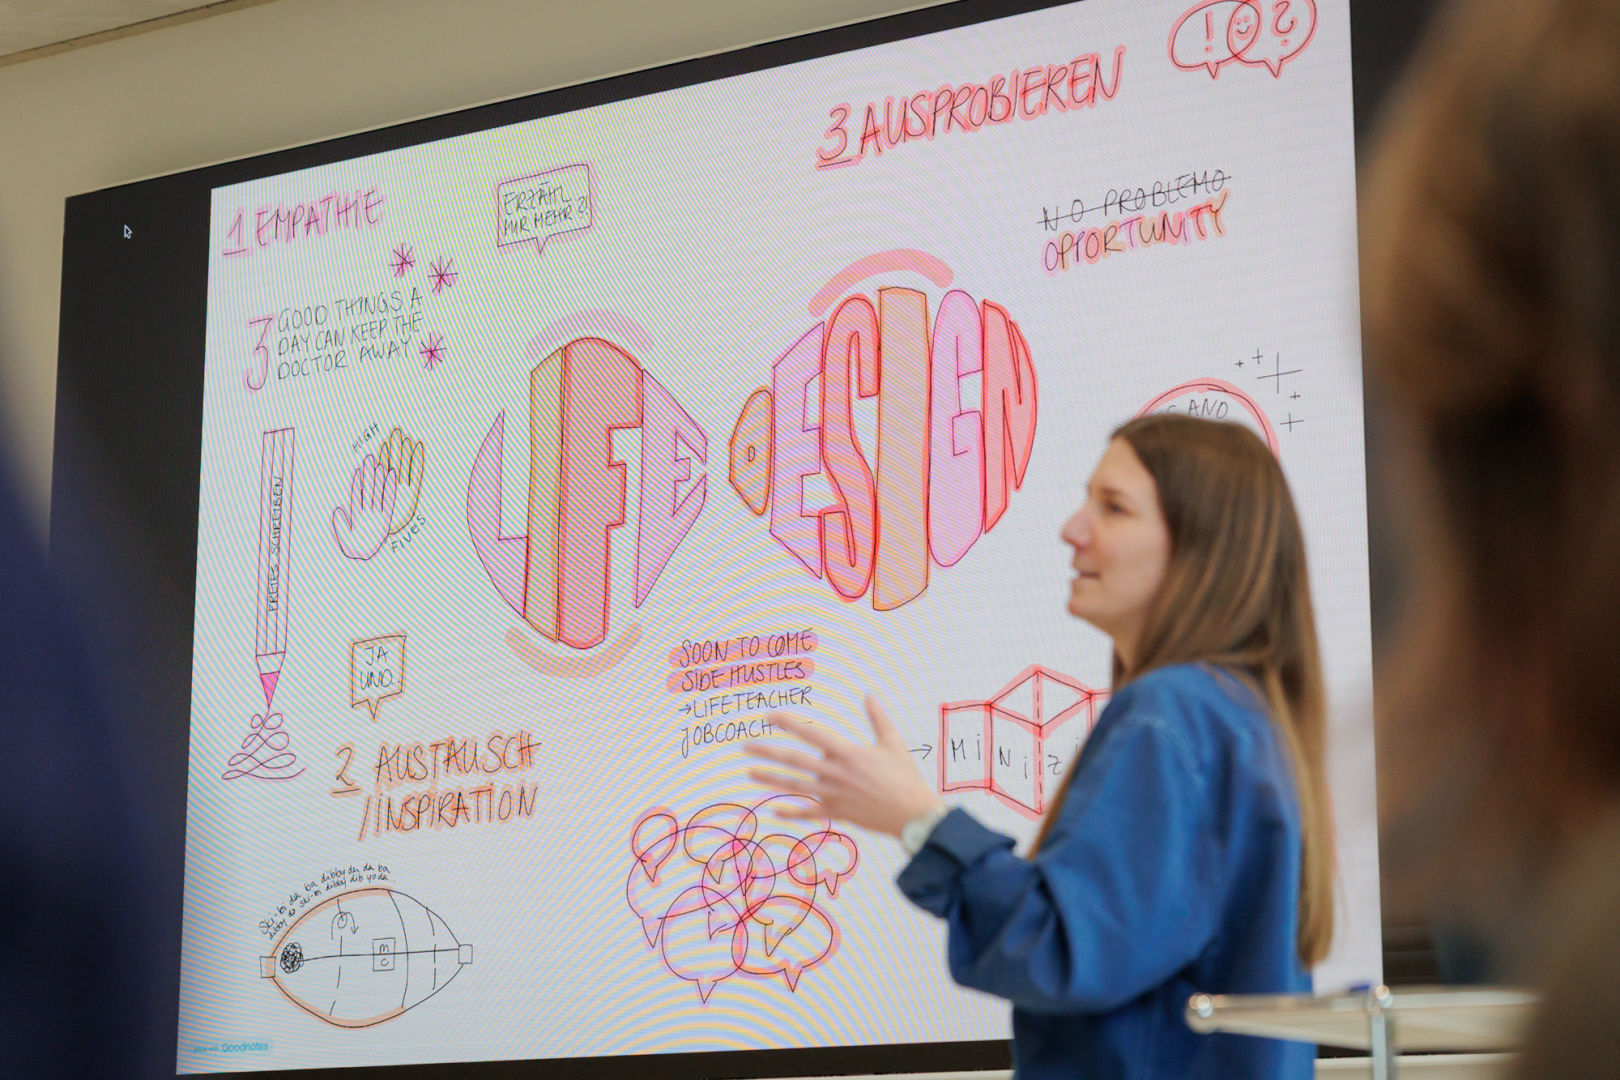 1 EMPATHIE
ERZÄHL
MIR MEHR ?!
3 AUSPROBIEREN
! ?
NO PROBLEMO
OPPORTUNITY
3 GOOD THINGS A
DAY CAN KEEP THE
DOCTOR AWAY
HIGH
FIVES
FREIES SCHREIBEN
LIFE DESIGN
AND
JA
UND...
SOON TO COME
SIDE HUSTLES
→LIFETEACHER
JOBCOACH
→ MINIZ
2 AUSTAUSCH
/INSPIRATION
Ski-bi da ba dibby du da ba
dibby do ski-bi dibby dib yo da
m
c
Goodnotes